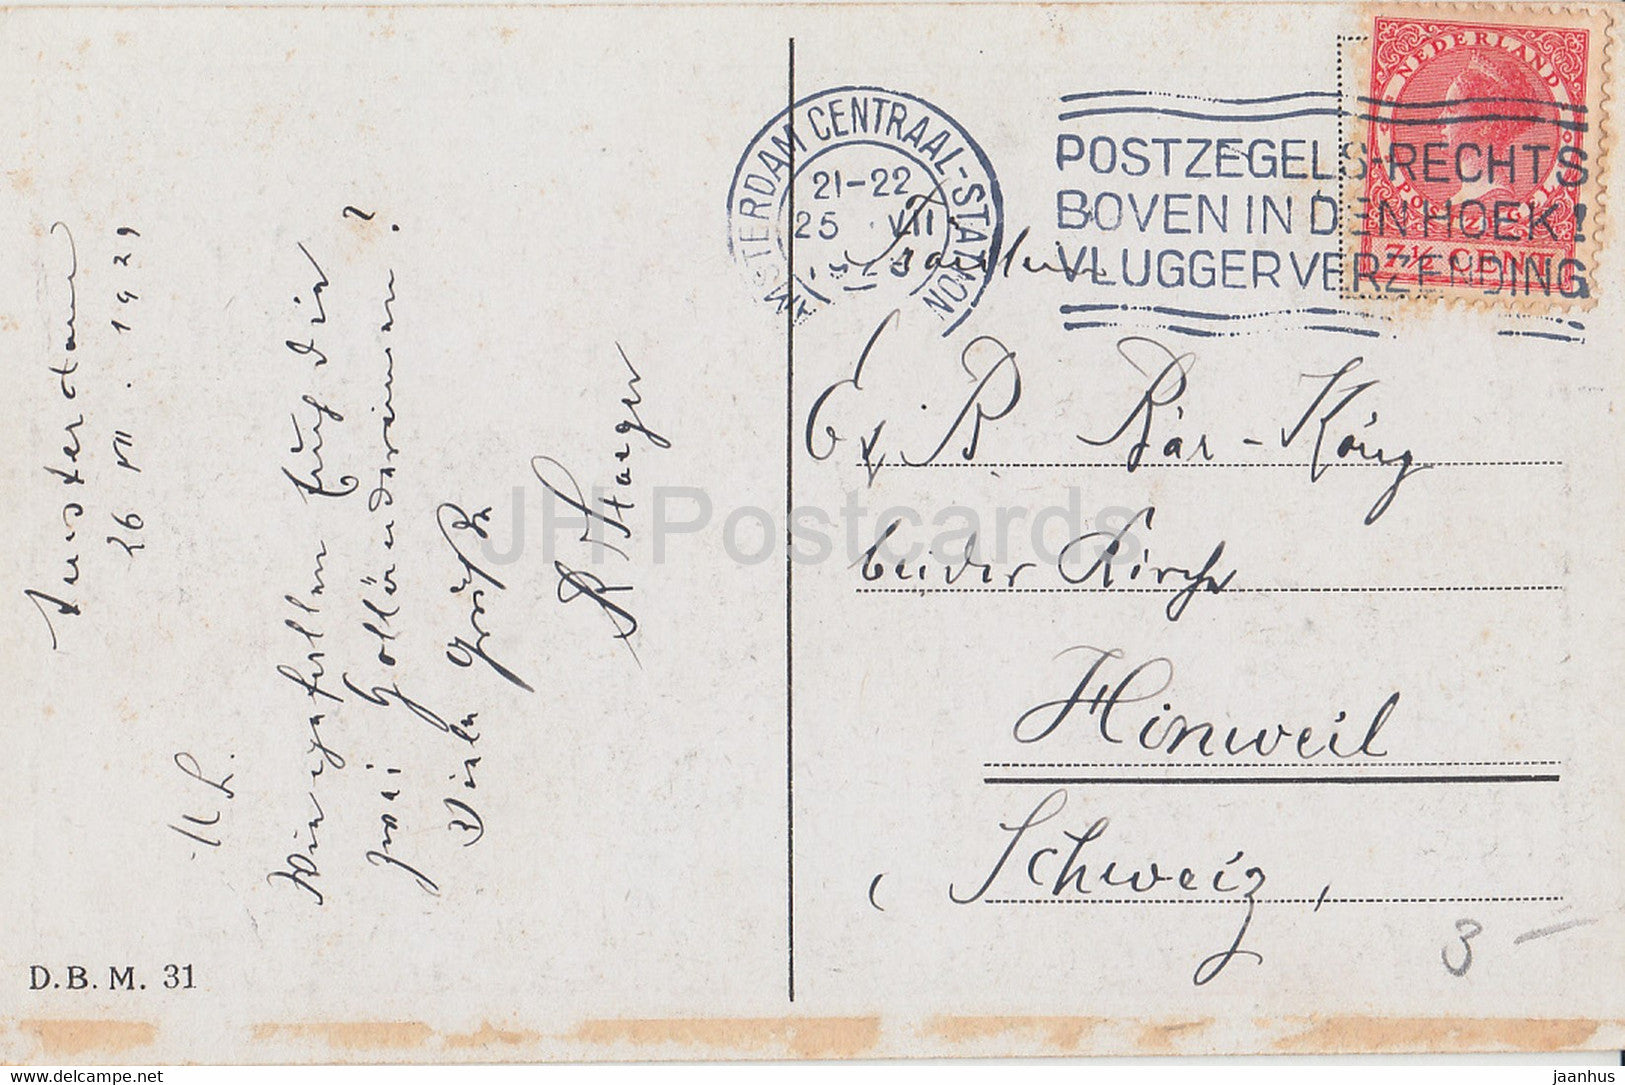 Amsterdam
26 VII. 1929
M L.
Wie gefallen Euch die
zwei Holländerinnen?
Viele Grüße
R Staeger
D.B.M. 31
AMSTERDAM CENTRAAL-STATION
21-22
25 VII
POSTZEGELS-RECHTS
BOVEN IN DEN HOEK!
VLUGGER VERZENDING
NEDERLAND
POSTZEGEL
7½ CENT
Familie
E. B. Bär-König
bei der Kirche
Hinweil
(Schweiz)
3 —
JH Postcards
www.delcampe.net
jaanhus